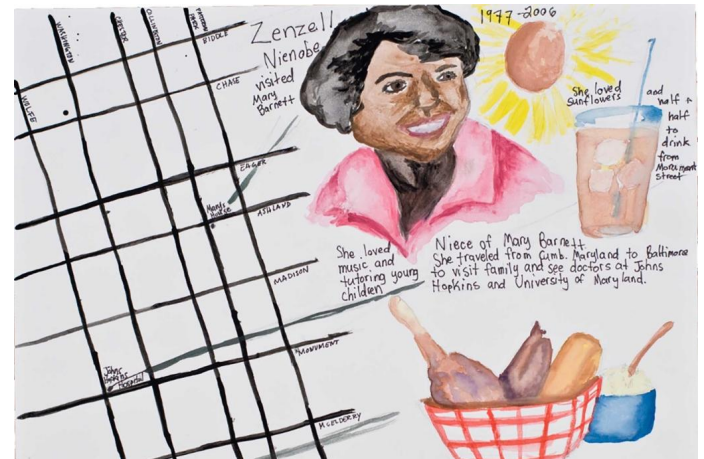 WOLFE
WASHINGTON
COLLINGTON
PATTERSON
PARK
BIDDLE
CHASE
EAGER
ASHLAND
MADISON
MONUMENT
MCELDERRY
Mary's
House
Johns
Hopkins
Hospital
Zenzell
Nienobe
visited
Mary
Barnett
1977-2006
She loved
sunflowers
and
half &
half
to
drink
from
Monument
street
She loved
music and
tutoring young
children
Niece of Mary Barnett
She traveled from Cumb. Maryland to Baltimore
to visit family and see doctors at Johns
Hopkins and University of Maryland.